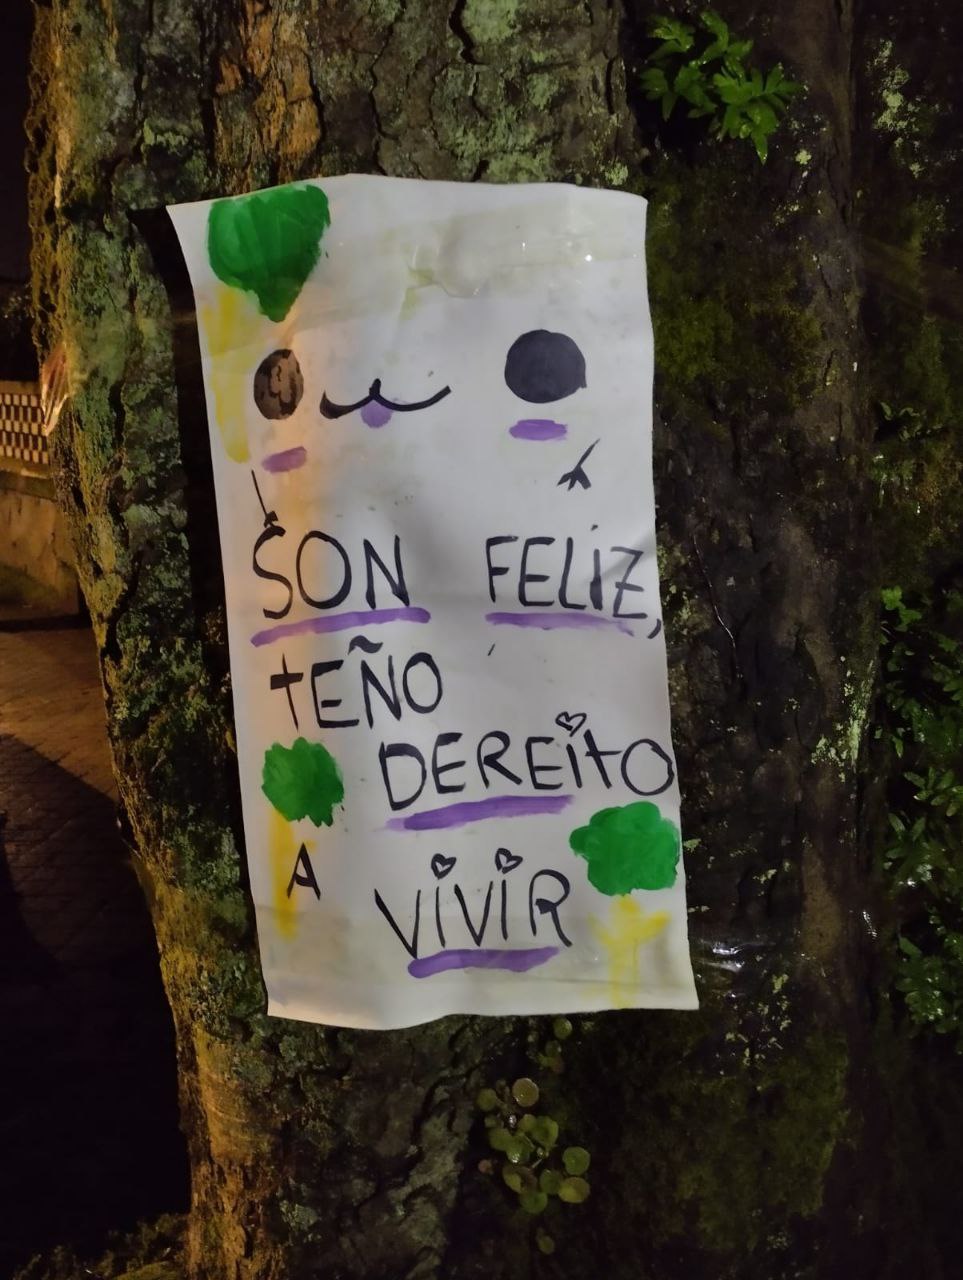 SON FELIZ,
TEÑO
DEREITO
A VIVIR